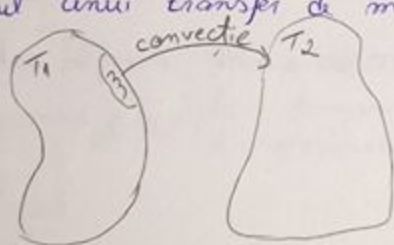 unui transfer de m
convecție
T1
m
T2